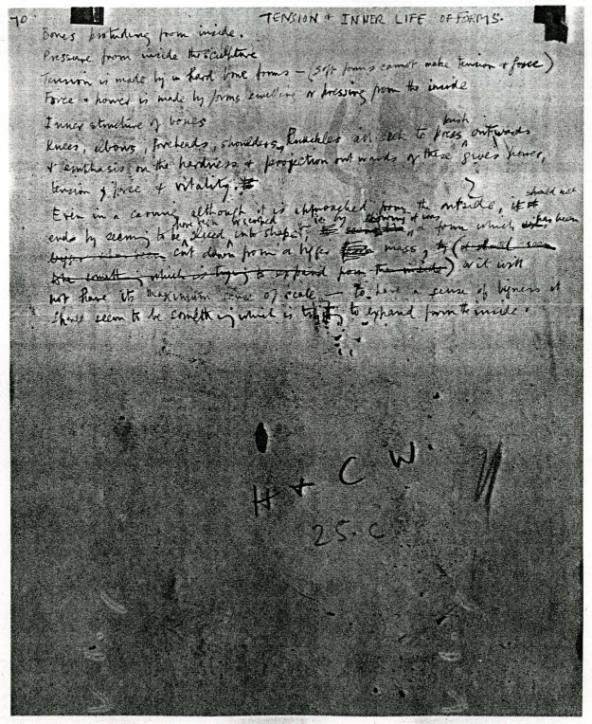 70
TENSION & INNER LIFE OF FORMS.
Bones protruding from inside.
Pressure from inside the sculpture
Tension is made by in hard bone forms – (soft forms cannot make tension & force)
Force & power is made by forms swelling or pressing from the inside
Inner structure of bones
push
Knees, elbows, foreheads, shoulders, knuckles all to press outwards
& emphasis on the hardness & projection outwards of these gives power,
tension & force & vitality.
should not
Even in a carving although it is approached from the outside, it
ends by seeming to be sliced into shape, from which has been
cut down from a bigger mass, or it will
which is trying to expand from the inside
not have its maximum sense of scale – to have a sense of bigness it
should seem to be something which is trying to expand from the inside.
H + C W.
25. C